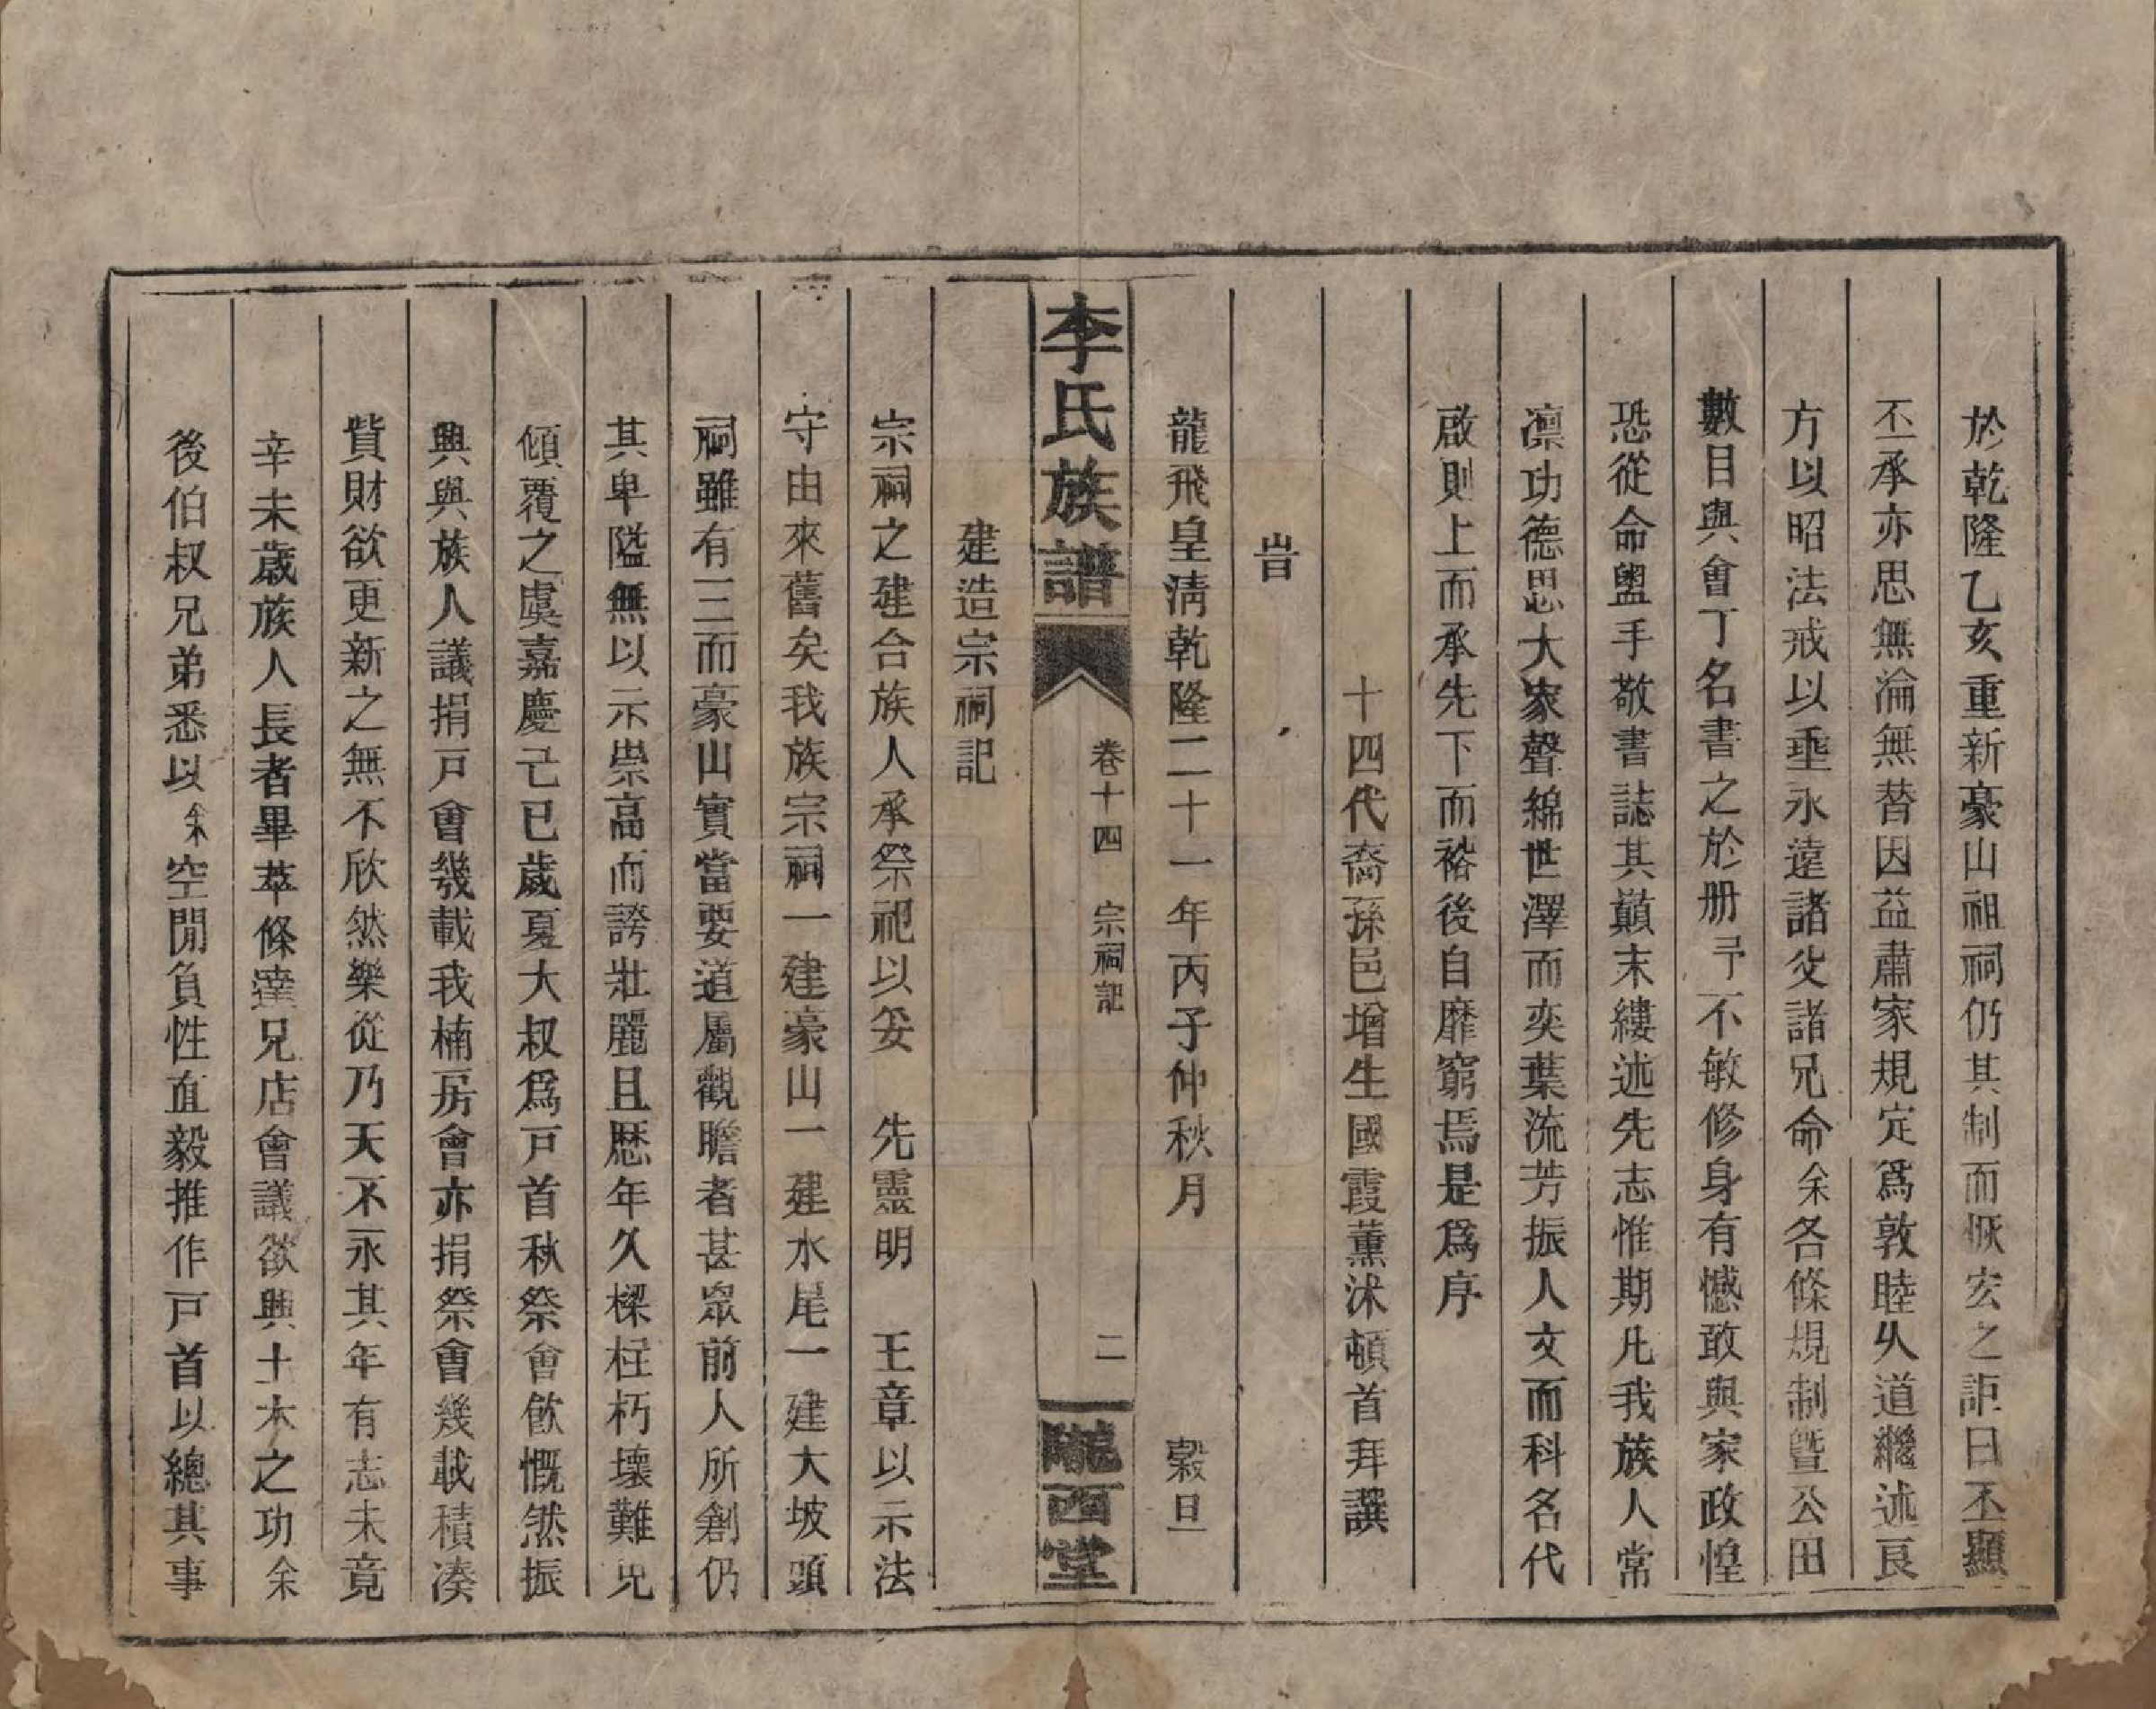 於乾隆乙亥重新豪山祖祠仍其制而恢宏之詎曰丕顯
丕承亦思無淪無替因益肅家規定爲敦睦乆道繼述良
方以昭法戒以垂永遠諸父諸兄命余各條規制曁公田
數目與會丁名書之於册予不敏修身有憾敢與家政惶
恐從命盥手敬書誌其巔末縷述先志惟期凡我族人常
凛功德思大家聲綿世澤而奕葉流芳振人文而科名代
啟則上而承先下而裕後自靡窮焉是爲序
十四代裔孫邑增生國霞薰沐頓首拜譔
旹
龍飛皇淸乾隆二十一年丙子仲秋月 穀旦
李氏族譜 卷十四 宗祠記 二 隴西堂
建造宗祠記
宗祠之建合族人承祭祀以妥 先靈明 王章以示法
守由來舊矣我族宗祠一建豪山一建水尾一建大坡頭
祠雖有三而豪山實當要道屬觀瞻者甚眾前人所創仍
其卑隘無以示崇高而誇壯麗且歷年久樑柱朽壞難免
傾覆之虞嘉慶己巳歲夏大叔爲戸首秋祭會飲慨然振
興與族人議捐戸會幾載我楠房會亦捐祭會幾載積凑
貲財欲更新之無不欣然樂從乃天不永其年有志未竟
辛未歲族人長者畢萃條達兄店會議欲興土木之功余
後伯叔兄弟悉以余空閒負性直毅推作戸首以總其事